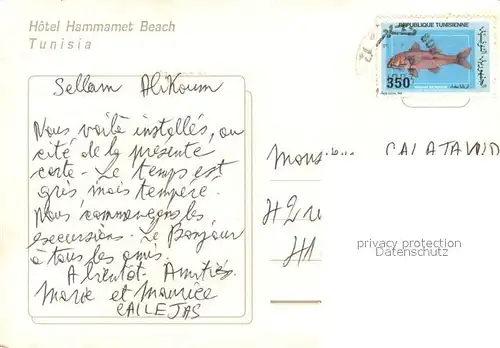 Hôtel Hammamet Beach
Tunisia
REPUBLIQUE TUNISIENNE
350
Sellam AliKoum
Nous voilà installés, au
cité de la présente
carte - Le temps est
gris mais tempéré.
Nous commençons les
excursions. Le Bonjour
à tous les amis.
A bientôt. Amitiés.
Marie et Maurice
CALLEJAS
Monsieur CALATAYUD
privacy protection
Datenschutz